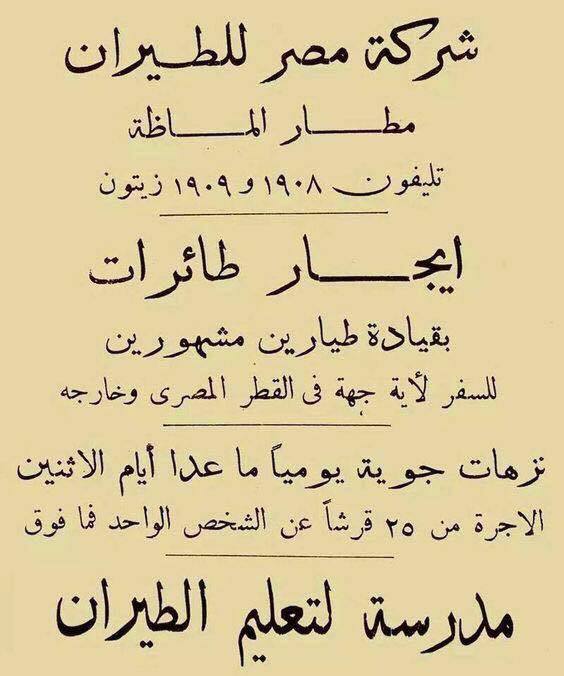 شركة مصر للطيران
مطار الماظة
تليفون ١٩٠٨ و ١٩٠٩ زيتون
ايجار طائرات
بقيادة طيارين مشهورين
للسفر لأية جهة فى القطر المصرى وخارجه
نزهات جوية يومياً ما عدا أيام الاثنين
الاجرة من ٢٥ قرشاً عن الشخص الواحد فما فوق
مدرسة لتعليم الطيران